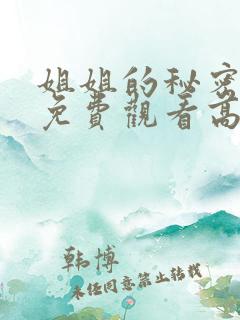 姐姐的秘密
免費觀看高
韩博
未经同意禁止转载